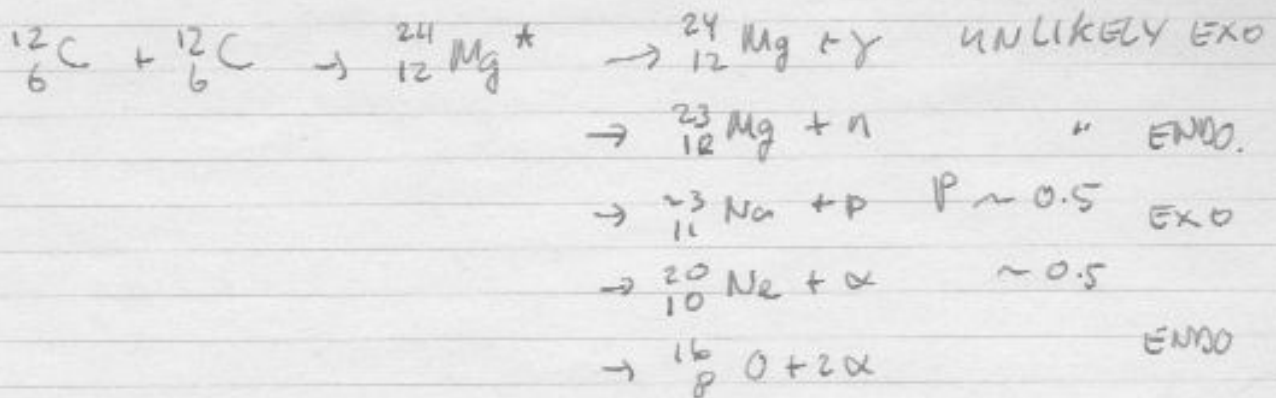 ¹²₆C + ¹²₆C → ²⁴₁₂Mg* → ²⁴₁₂Mg + γ UNLIKELY EXO
→ ²³₁₂Mg + n " ENDO.
→ ²³₁₁Na + p P ~ 0.5 EXO
→ ²⁰₁₀Ne + α ~ 0.5
→ ¹⁶₈O + 2α ENDO